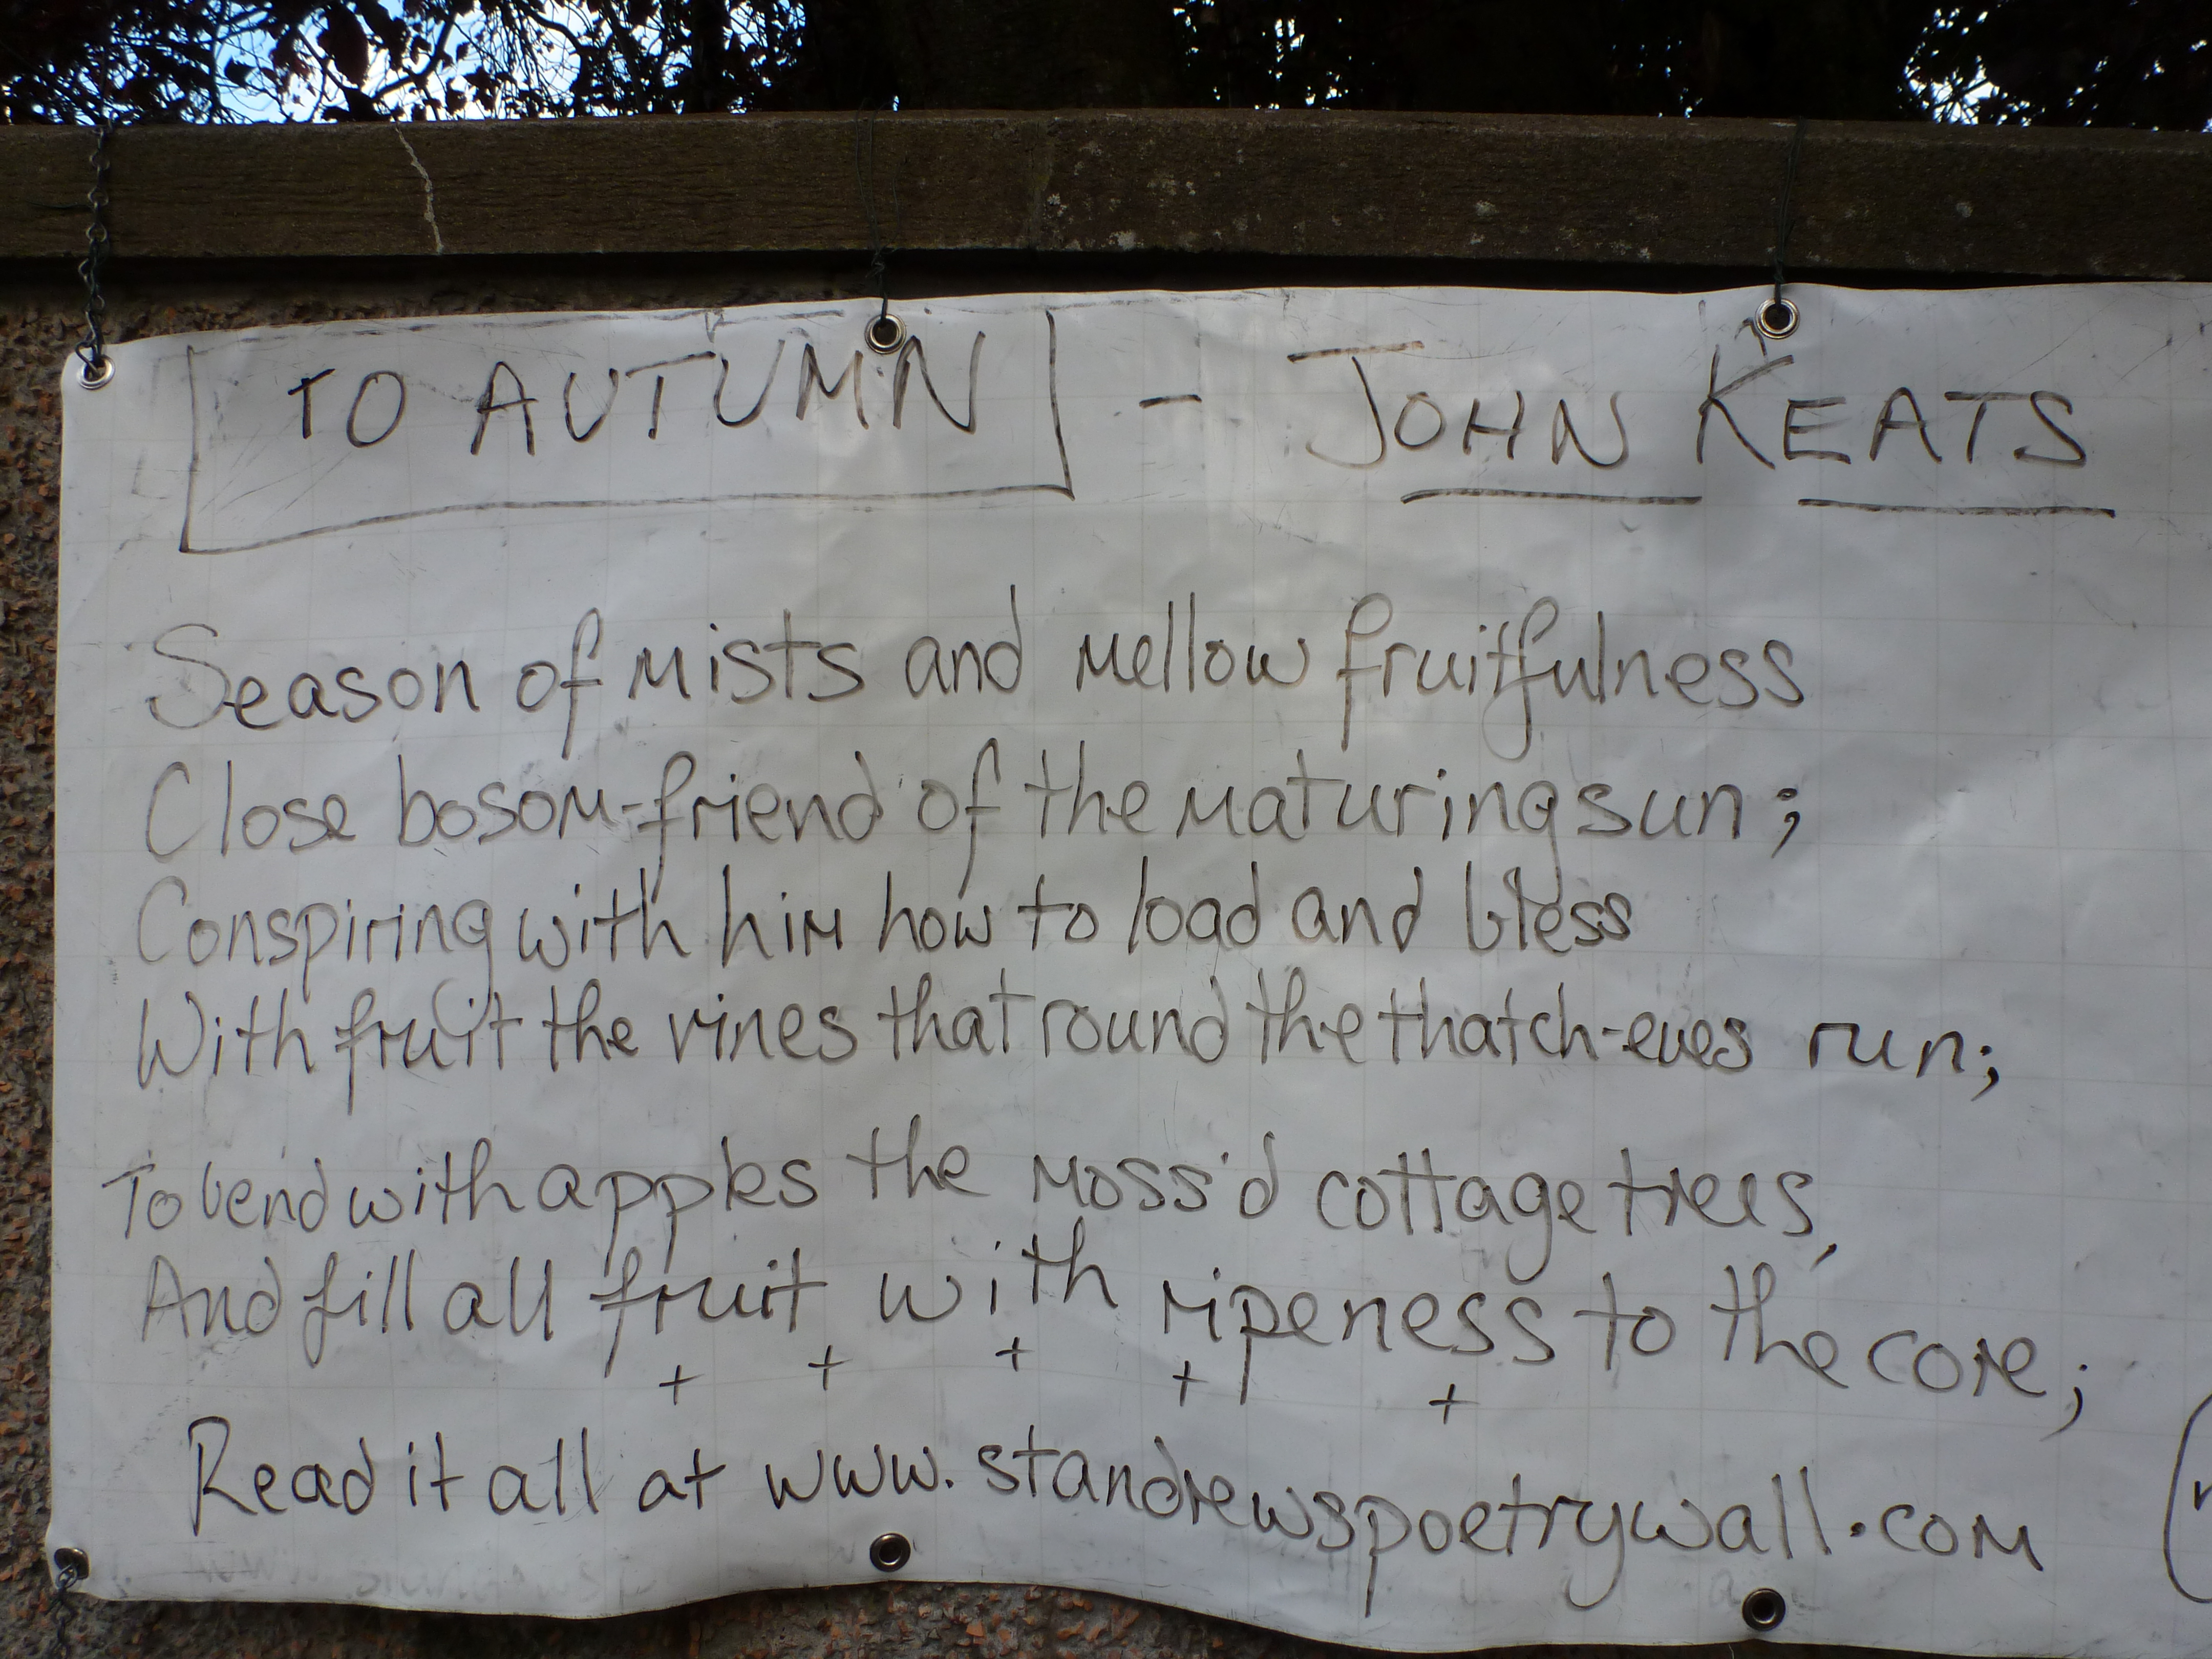 TO AUTUMN - JOHN KEATS
Season of mists and mellow fruitfulness
Close bosom-friend of the maturing sun;
Conspiring with him how to load and bless
With fruit the vines that round the thatch-eves run;
To bend with apples the moss'd cottage trees,
And fill all fruit with ripeness to the core;
+ + + + +
Read it all at www.standrewspoetrywall.com